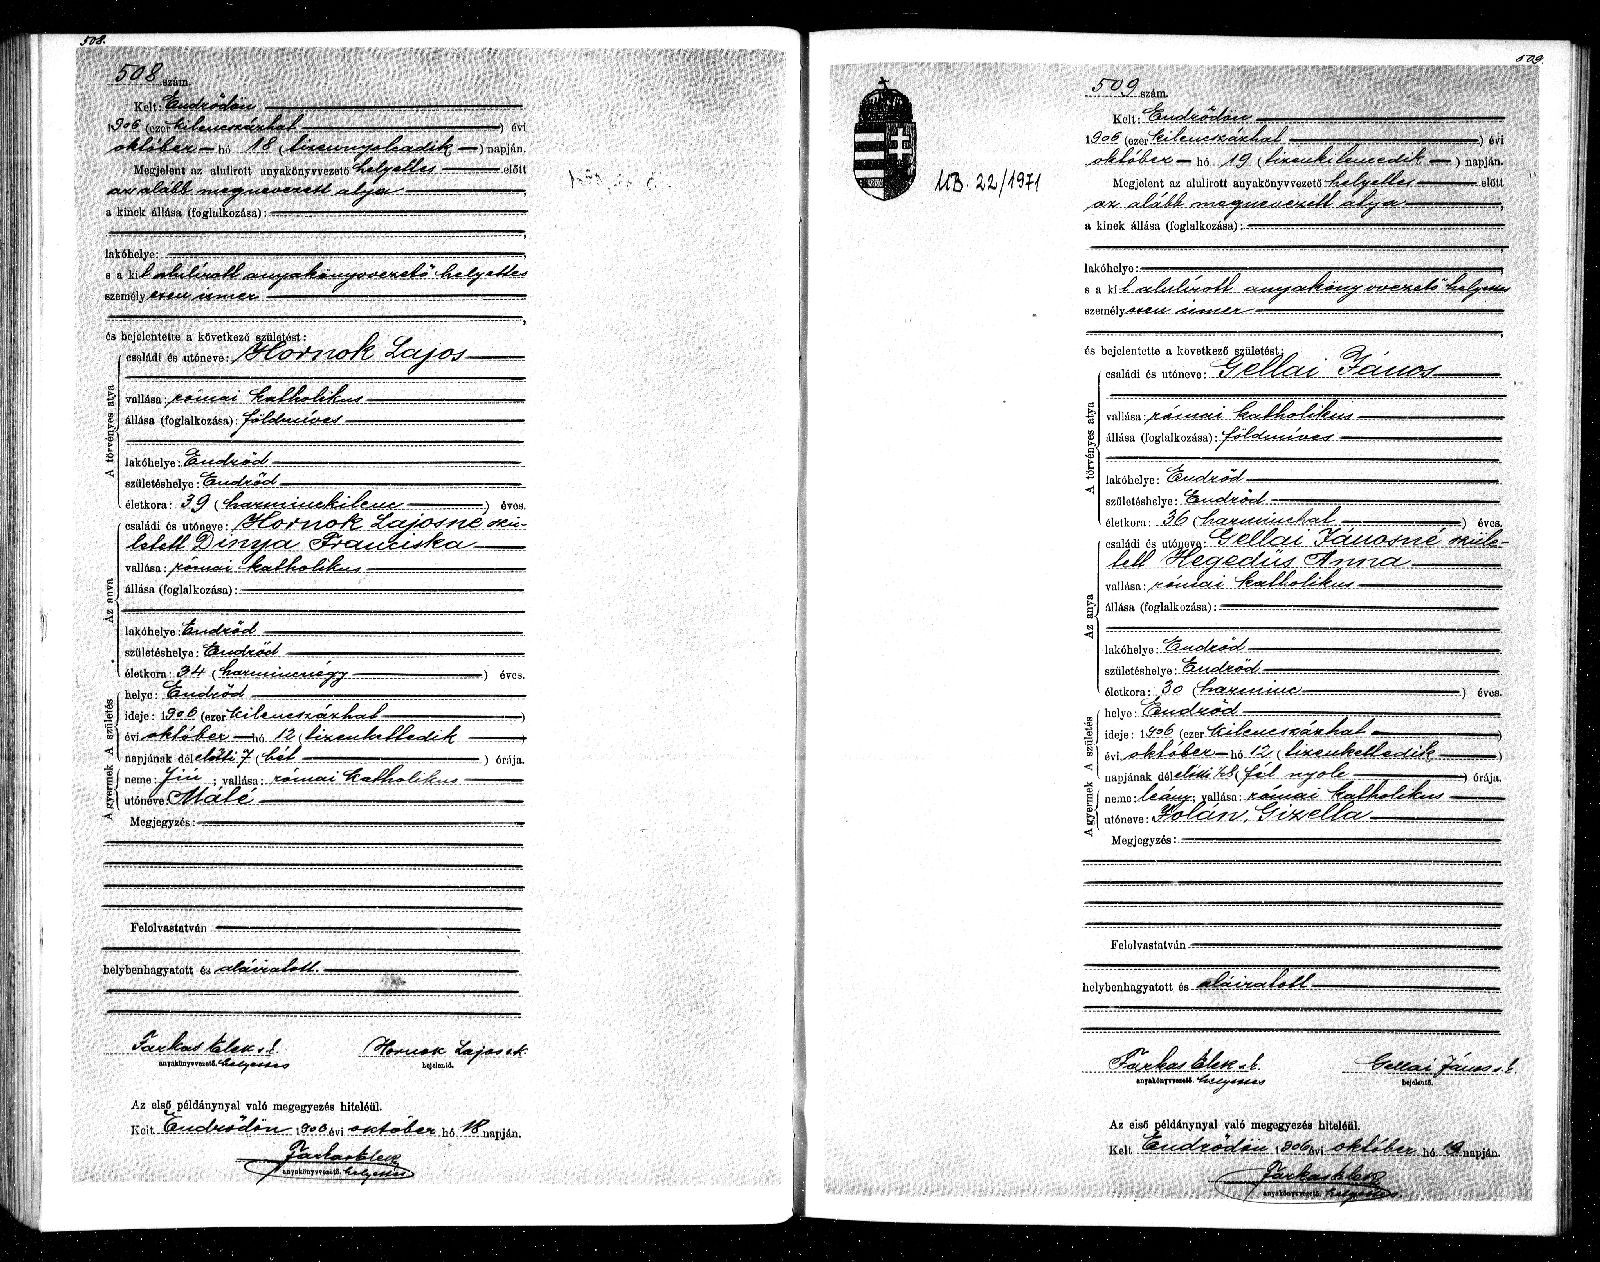 508.
508 szám.
Kelt: Endrődön
1906 (ezer kilenczszázhat) évi
október hó 18 (tizennyolcadik) napján.
Megjelent az alulirott anyakönyvvezető helyettes előtt
az alább megnevezett atya
a kinek állása (foglalkozása):
lakóhelye:
s a kit alulírott anyakönyvvezető helyettes
személyesen ismer
és bejelentette a következő születést:
A törvényes atya
családi és utóneve: Hornok Lajos
vallása: római katholikus
állása (foglalkozása): földmíves
lakóhelye: Endrőd
születéshelye: Endrőd
életkora: 39 (harminckilenc) éves.
Az anya
családi és utóneve: Hornok Lajosné szü-
letett Dinya Franciska
vallása: római katholikus
állása (foglalkozása):
lakóhelye: Endrőd
születéshelye: Endrőd
életkora: 34 (harmincnégy) éves.
A születés
helye: Endrőd
ideje: 1906 (ezer kilenczszázhat)
évi október hó 12 (tizenkettedik)
napjának délelőtti 7 (hét) órája.
A gyermek
neme: fiú; vallása: római katholikus
utóneve: Máté
Megjegyzés:
Felolvastatván
helybenhagyatott és aláiratott.
Farkas Elek s.k. Hornok Lajos s.k.
anyakönyvvezető. helyettes bejelentő.
Az első példánynyal való megegyezés hiteléül.
Kelt Endrődön 1906 évi október hó 18 napján.
Farkas Elek
anyakönyvvezető. helyettes
509.
509 szám.
MB. 22/1971
Kelt: Endrődön
1906 (ezer kilenczszázhat) évi
október hó 19 (tizenkilencedik) napján.
Megjelent az alulirott anyakönyvvezető helyettes előtt
az alább megnevezett atya
a kinek állása (foglalkozása):
lakóhelye:
s a kit alulírott anyakönyvvezető helyettes
személyesen ismer
és bejelentette a következő születést:
A törvényes atya
családi és utóneve: Gellai János
vallása: római katholikus
állása (foglalkozása): földmíves
lakóhelye: Endrőd
születéshelye: Endrőd
életkora: 36 (harminchat) éves.
Az anya
családi és utóneve: Gellai Jánosné szüle-
tett Hegedüs Anna
vallása: római katholikus
állása (foglalkozása):
lakóhelye: Endrőd
születéshelye: Endrőd
életkora: 30 (harminc) éves.
A születés
helye: Endrőd
ideje: 1906 (ezer kilenczszázhat)
évi október hó 12 (tizenkettedik)
napjának délelőtti ½8 (fél nyolc) órája.
A gyermek
neme: leány; vallása: római katholikus
utóneve: Jolán, Gizella
Megjegyzés:
Felolvastatván
helybenhagyatott és aláiratott
Farkas Elek s.k. Gellai János s.k.
anyakönyvvezető. helyettes bejelentő.
Az első példánynyal való megegyezés hiteléül.
Kelt Endrődön 1906 évi október hó 19 napján.
Farkas Elek
anyakönyvvezető. helyettes.